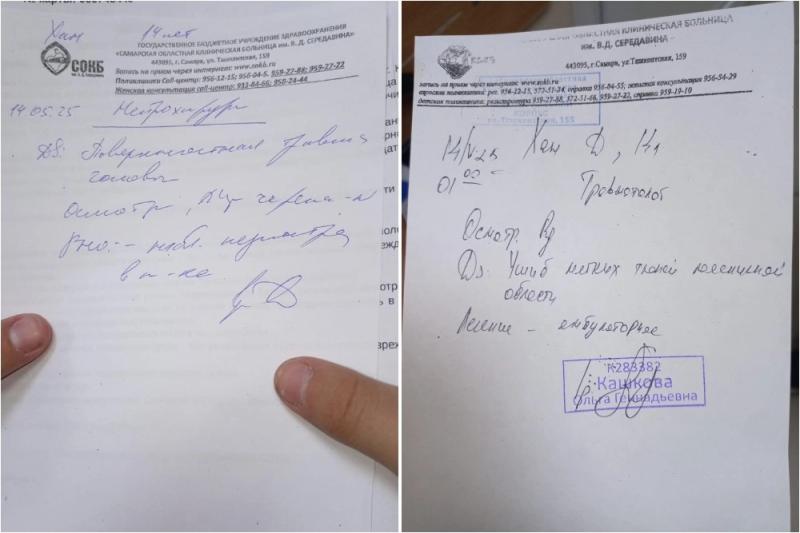 Хан 14 лет
ГОСУДАРСТВЕННОЕ БЮДЖЕТНОЕ УЧРЕЖДЕНИЕ ЗДРАВООХРАНЕНИЯ
«САМАРСКАЯ ОБЛАСТНАЯ КЛИНИЧЕСКАЯ БОЛЬНИЦА ИМ. В.Д. СЕРЕДАВИНА»
443095, г. Самара, ул. Ташкентская, 159
СОКБ
Запись на прием через интернет: www.sokb.ru
Поликлиника Call-центр: 956-12-15; 956-04-5 959-27-88; 959-27-22
Женская консультация call-центр:
14.05.25 Нейрохирург
DS: Поверхностная травма
головы
Осмотр, черепа
Рно: - набл. педиатра
в п-ке
ОБЛАСТНАЯ КЛИНИЧЕСКАЯ БОЛЬНИЦА
им. В.Д. СЕРЕДАВИНА
443095, г.Самара, ул.Ташкентская, 159
запись на прием через интернет: www.sokb.ru
взрослая поликлиника: рег. 956-12-15, 372-51-24, справка 956-04-55; женская консультация 956-54-29
детская поликлиника: регистратура 959-27-88, 372-51-66, 959-27-22, справка 959-19-10
14/V-25 Хан Д, 14л
01 00 Травматолог
Осмотр. Rg
Ds: Ушиб мягких тканей поясничной
области
Лечение – амбулаторное
К283382
Кашкова
Ольга Геннадьевна